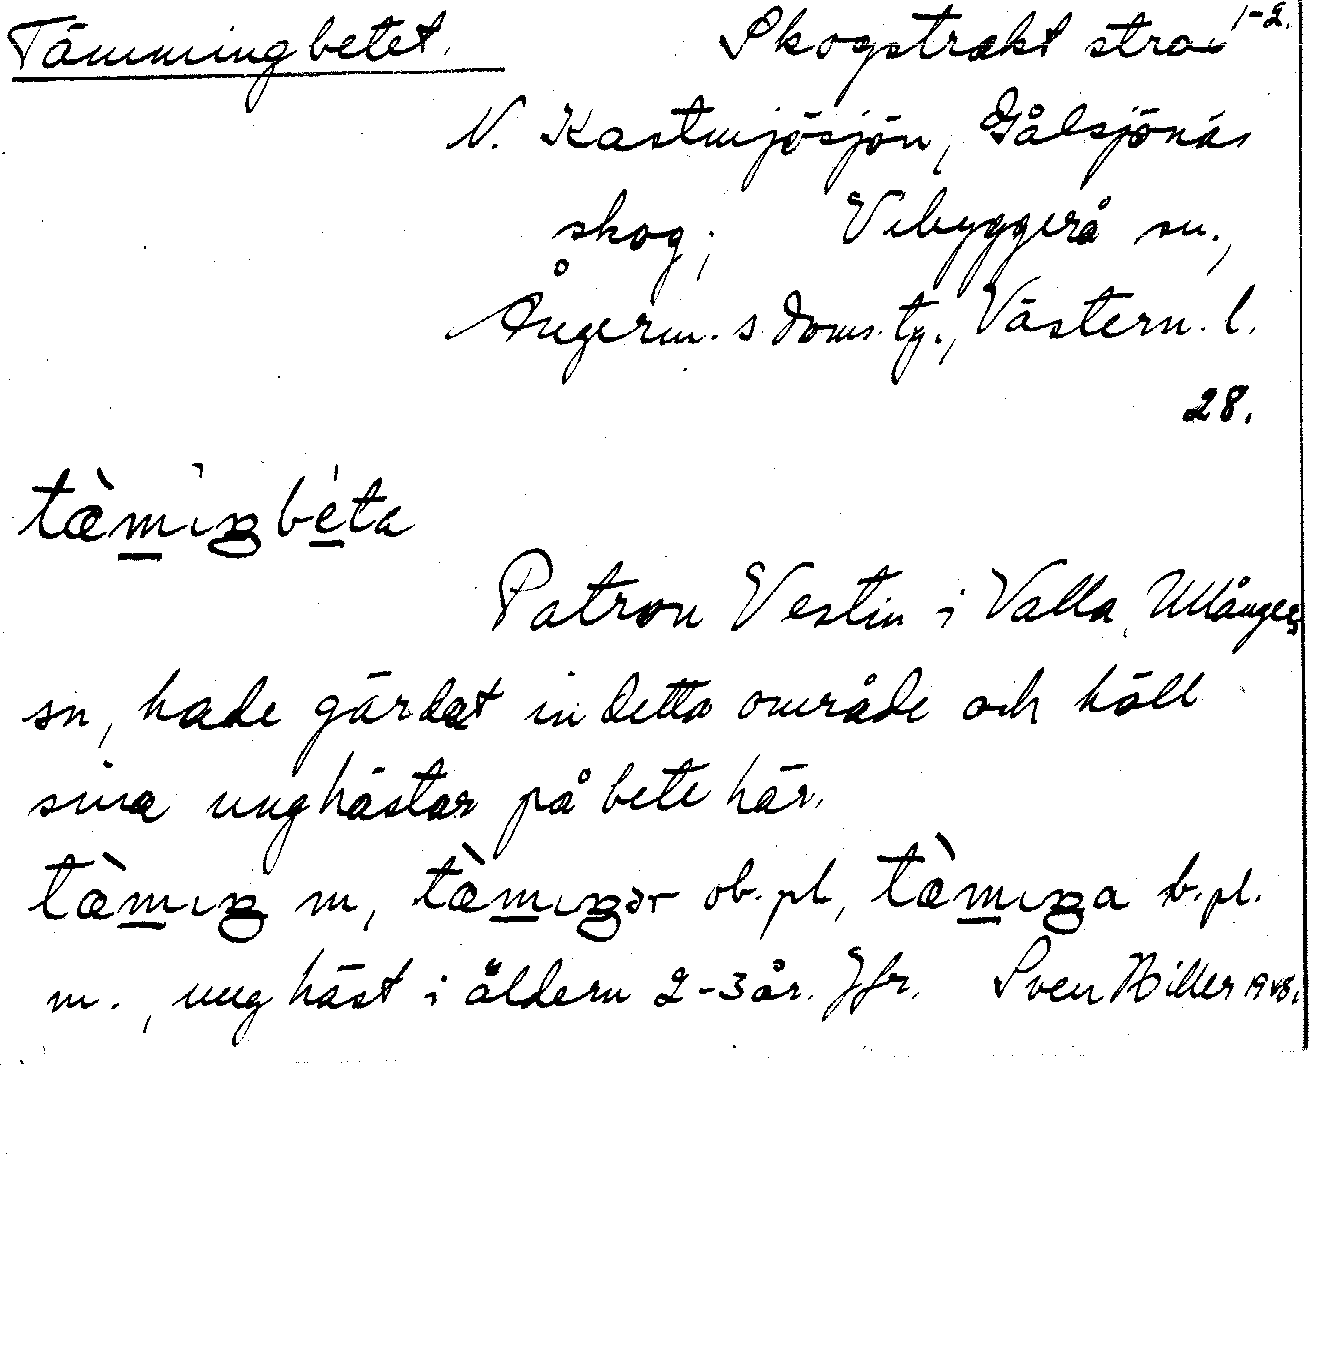 Tämmingbetet. Skogstrakt strax 1-2.
N. Kastmjösjön, Gålsjönäs
skog; Vibyggerå sn.,
Ångerm. s. doms. tg., Västern. l.
28.
tæ̀mıŋbéta
Patron Vestin i Valla, Ullångers
sn, hade gärdat in detta område och höll
sina unghästar på bete här.
tæ̀mıŋ m, tæ̀mıŋər ob. pl, tæ̀mıŋa b. pl.
m., unghäst i åldern 2-3 år. Jfr. Sven Hiller 1948.